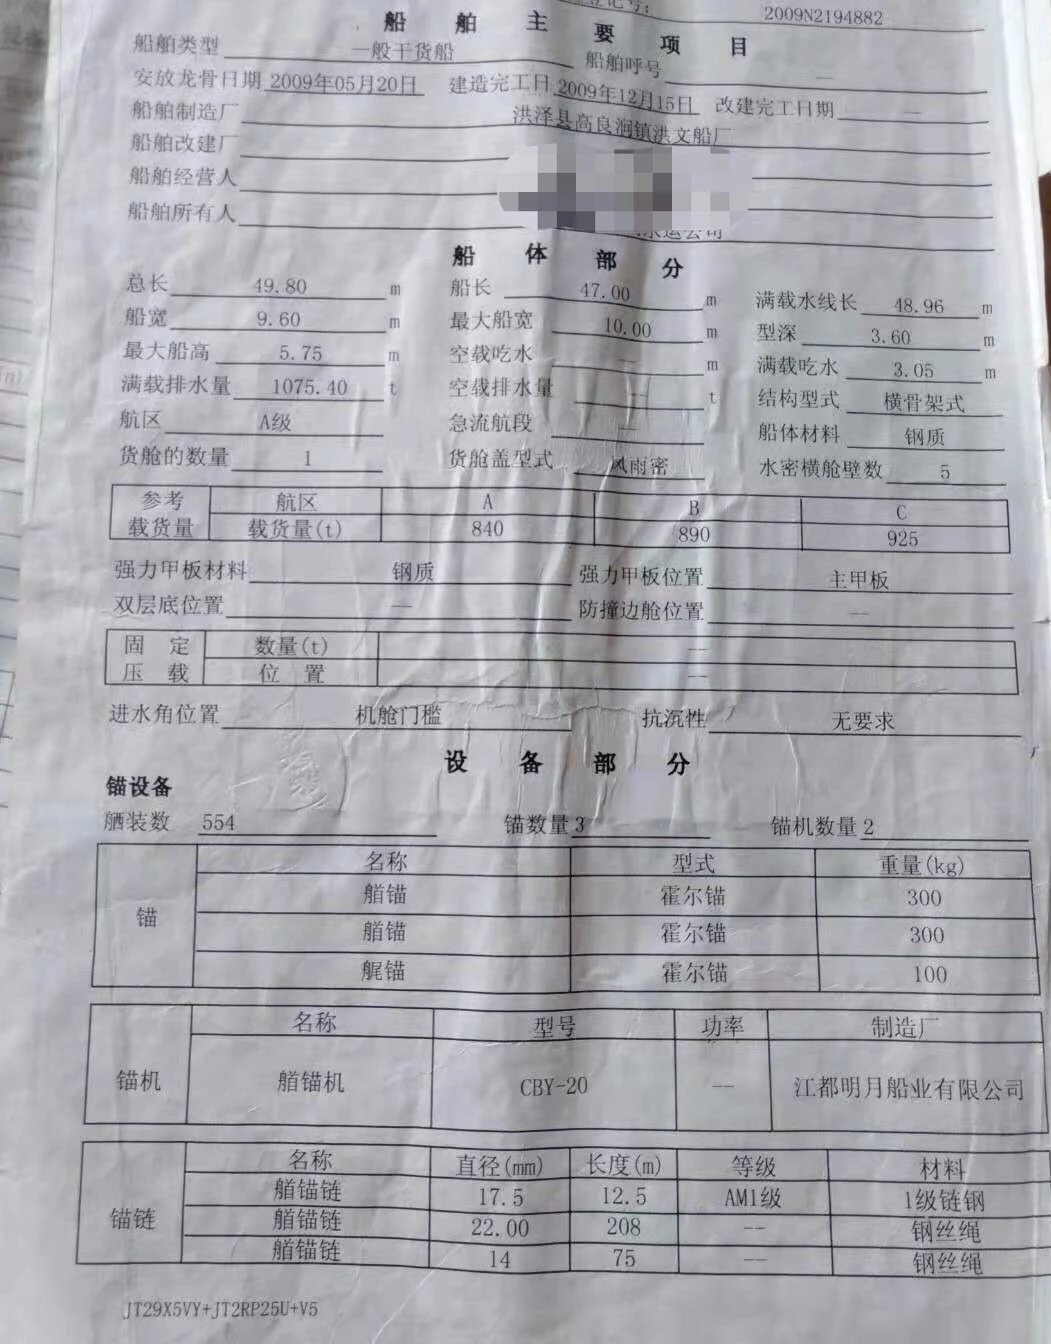 记号: 2009N2194882
船 舶 主 要 项 目
船舶类型 一般干货船 船舶呼号 —
安放龙骨日期 2009年05月20日 建造完工日 2009年12月15日 改建完工日期 —
船舶制造厂 洪泽县高良涧镇洪文船厂
船舶改建厂
船舶经营人
船舶所有人 水运公司
船 体 部 分
总长 49.80 m 船长 47.00 m 满载水线长 48.96 m
船宽 9.60 m 最大船宽 10.00 m 型深 3.60 m
最大船高 5.75 m 空载吃水 — m 满载吃水 3.05 m
满载排水量 1075.40 t 空载排水量 — t 结构型式 横骨架式
航区 A级 急流航段 — 船体材料 钢质
货舱的数量 1 货舱盖型式 风雨密 水密横舱壁数 5
参考 航区 A B C
载货量 载货量(t) 840 890 925
强力甲板材料 钢质 强力甲板位置 主甲板
双层底位置 — 防撞边舱位置 —
固 定 数量(t) —
压 载 位 置 —
进水角位置 机舱门槛 抗沉性 无要求
设 备 部 分
锚设备
舾装数 554 锚数量 3 锚机数量 2
名称 型式 重量(kg)
锚 艏锚 霍尔锚 300
艏锚 霍尔锚 300
艉锚 霍尔锚 100
名称 型号 功率 制造厂
锚机 艏锚机 CBY-20 — 江都明月船业有限公司
名称 直径(mm) 长度(m) 等级 材料
锚链 艏锚链 17.5 12.5 AM1级 1级链钢
艏锚链 22.00 208 — 钢丝绳
艏锚链 14 75 — 钢丝绳
JT29X5VY+JT2RP25U+V5